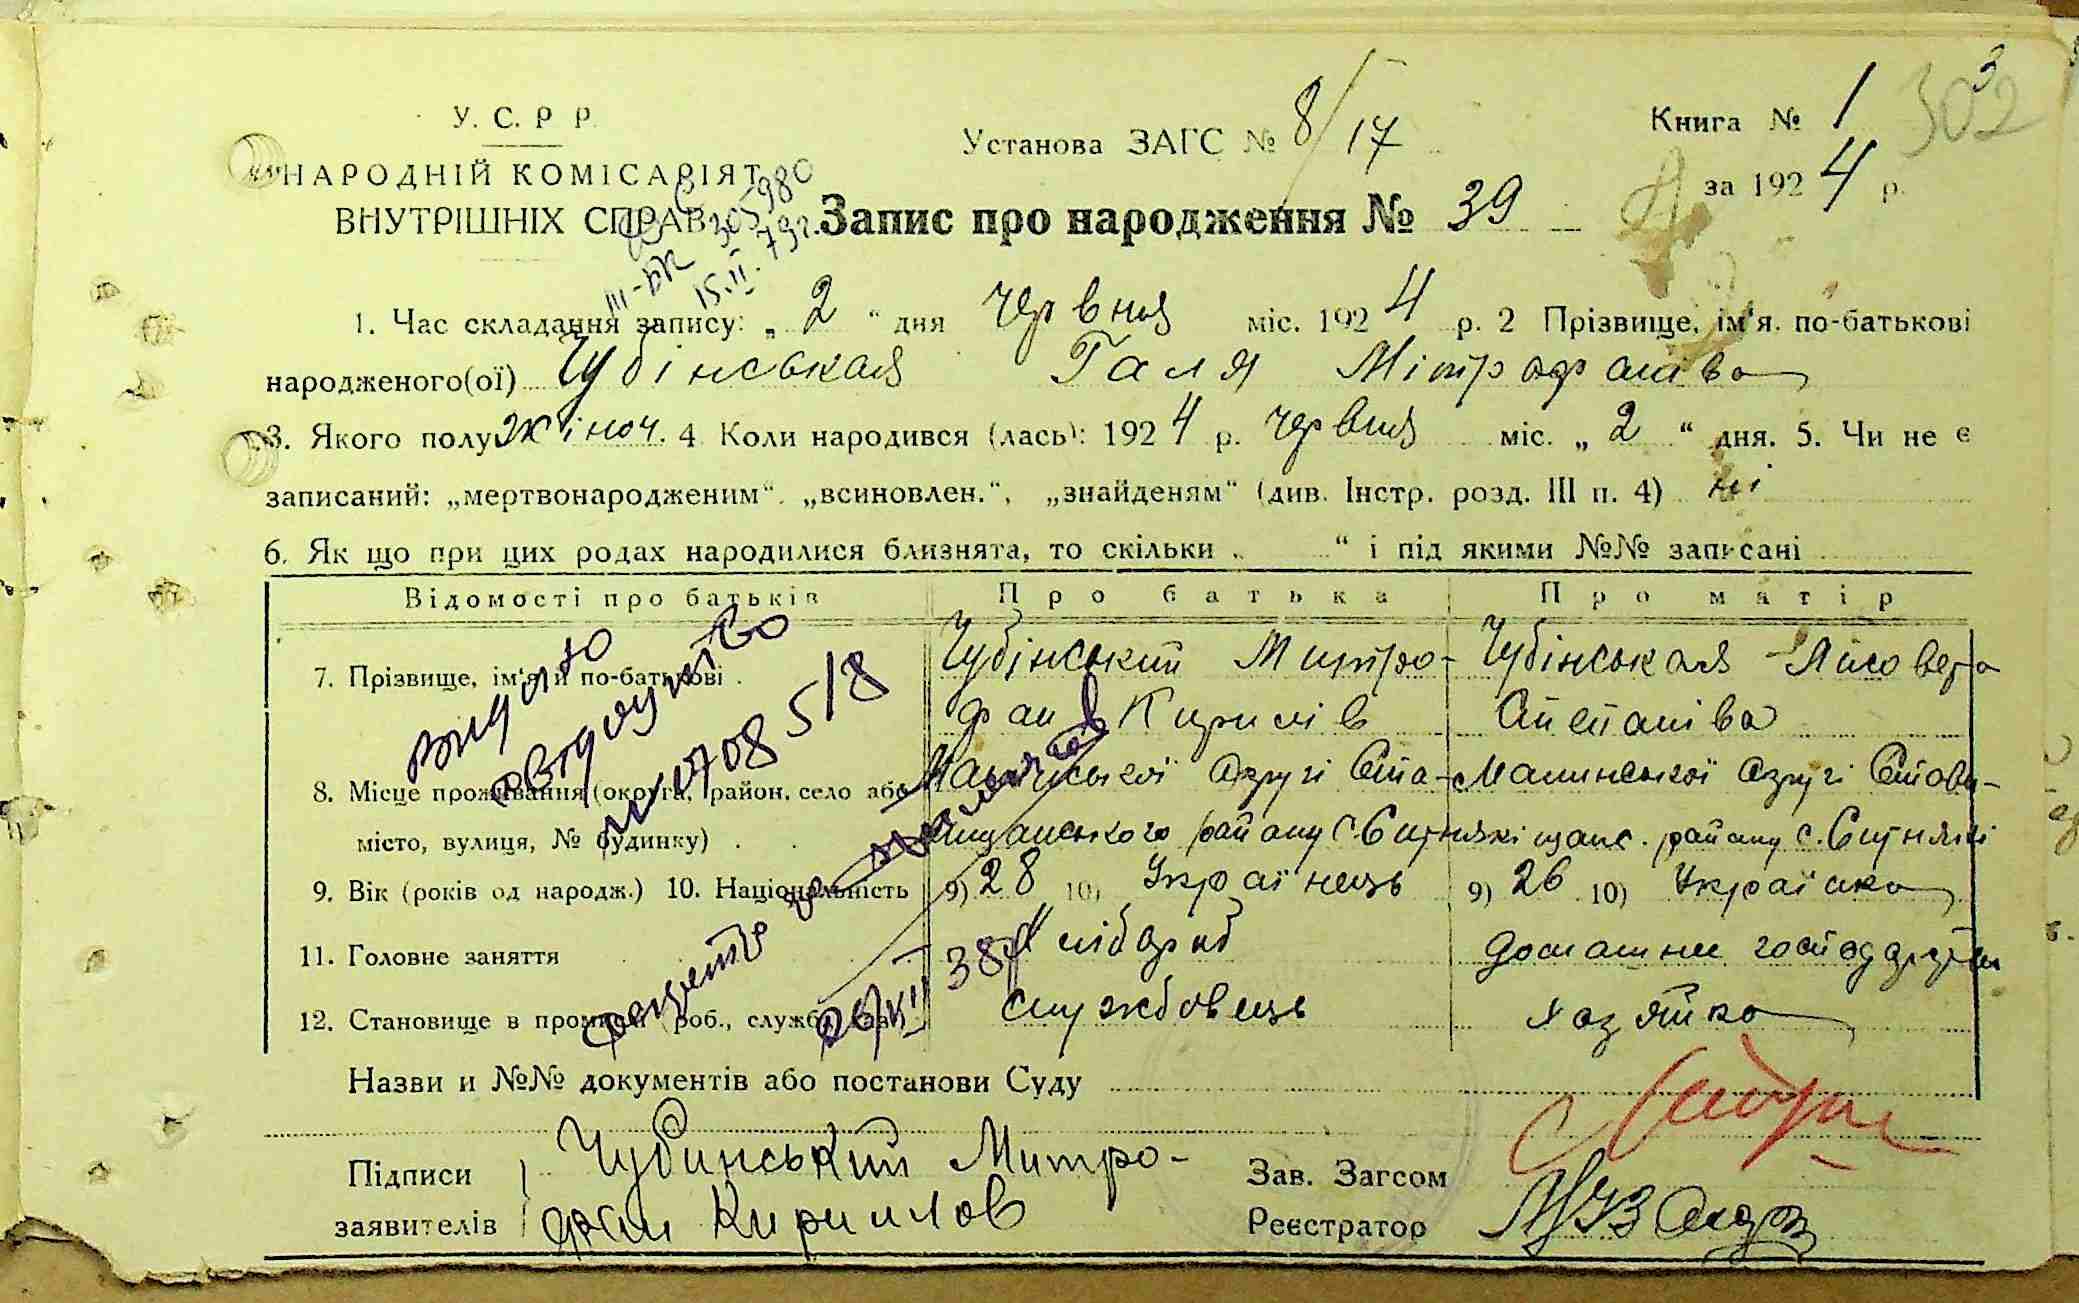 3
302
У. С. Р Р.
Установа ЗАГС № 8/17
Книга № 1
НАРОДНІЙ КОМІСАРІЯТ
за 1924 р.
ВНУТРІШНІХ СПРАВ
305980
III-БК
15.II.79г.
Запис про народження № 39
1. Час складання запису: „ 2 “ дня червня міс. 1924 р. 2 Прізвище, ім'я, по-батькові
народженого(ої) Чубінськая Галя Мітрофаніва
3. Якого полу жіноч. 4 Коли народився (лась): 1924 р. червня міс. „ 2 “ дня. 5. Чи не є
записаний: „мертвонародженим“. „всиновлен.“, „знайденям“ (див. Інстр. розд. III п. 4) ні
6. Як що при цих родах народилися близнята, то скільки „ “ і під якими №№ записані
Відомості про батьків Про батька Про матір
7. Прізвище, ім'я й по-батькові . Чубінський Митро- Чубінськая
фан Кирилів
8. Місце проживання (округа, район, село або Малинської округі Ста- Малинської округі Стави-
місто, вулиця, № будинку) . . вищанського району с. Ситнякі щанс. району с. Ситнякі
9. Вік (років од народж.) 10. Національність 9) 28 10) Українець 9) 26 10) Українка
11. Головне заняття Хлібороб домашне господарство
12. Становище в промислі (роб., служб. службовець хозяйка
видано
свідоцтво
708518
26/XII 38
Назви и №№ документів або постанови Суду
Підписи Чубинський Митро- Зав. Загсом
заявителів фан Кириллов Реєстратор